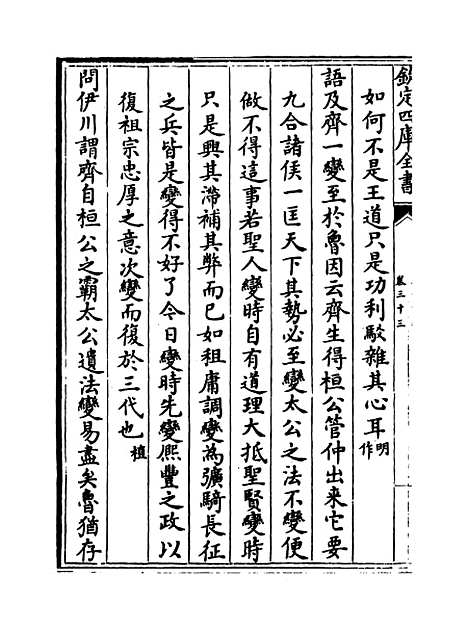 欽定四庫全書
卷三十三
如何不是王道只是功利駁雜其心耳明作
語及齊一變至於魯因云齊生得桓公管仲出來它要
九合諸侯一匡天下其勢必至變太公之法不變便
做不得這事若聖人變時自有道理大抵聖賢變時
只是興其滯補其弊而已如租庸調變為彍騎長征
之兵皆是變得不好了今日變時先變熈豐之政以
復祖宗忠厚之意次變而復於三代也植
問伊川謂齊自桓公之霸太公遺法變易盡矣魯猶存